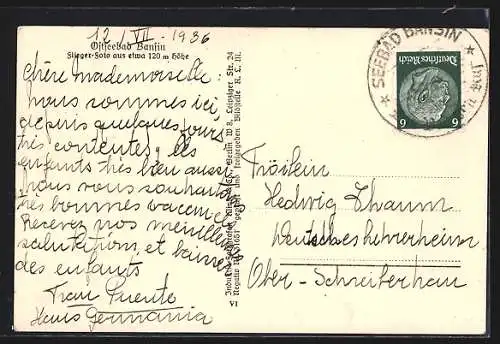 12/VII - 1936
Ostseebad Bansin
Flieger-Foto aus etwa 120 m Höhe
Chère Mademoiselle:
nous sommes ici,
depuis quelques jours
très contentes, les
enfants très bien aussi
nous vous souhaitons
très bonnes vacances
Recevez nos meilleures
salutations et baisers
des enfants
Frau Puente
Haus Germania
VI
SEEBAD BANSIN
Deutsches Reich
6 6
Fräulein
Hedwig Thaum
Deutsches Lehrerheim
Ober-Schreiberhau